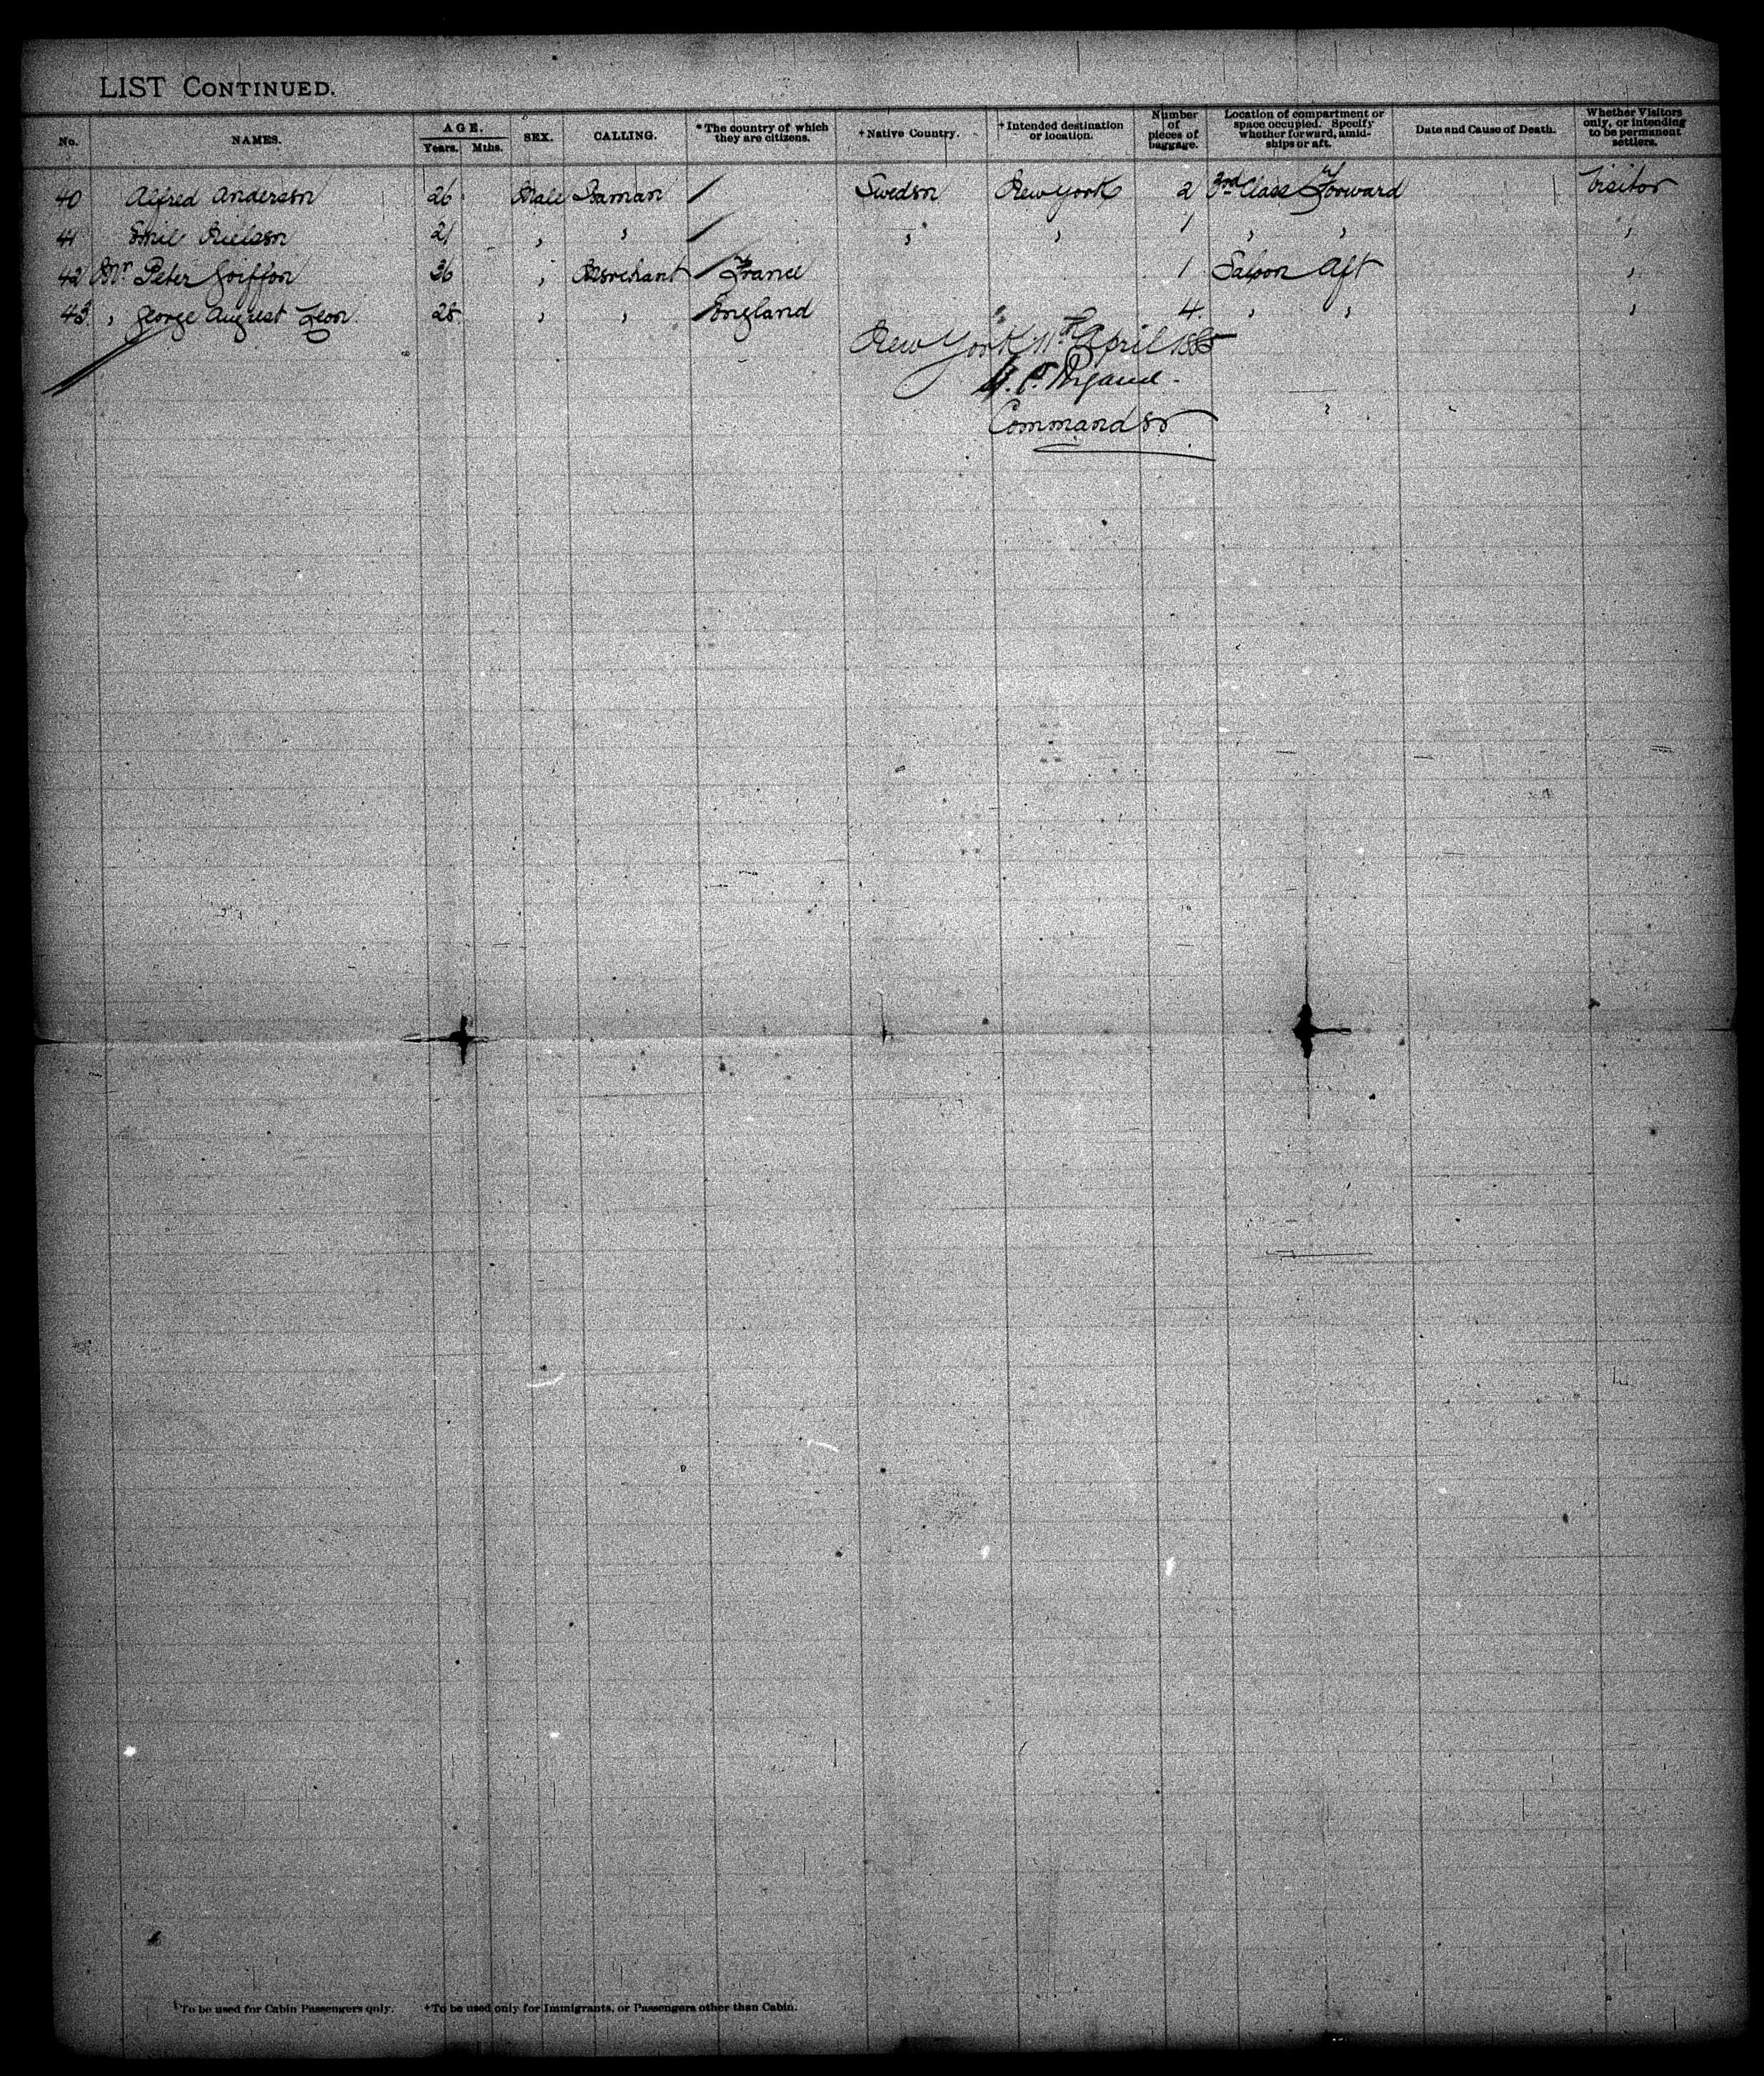 LIST CONTINUED.
No. NAMES. AGE. Years. Mths. SEX. CALLING. *The country of which they are citizens. +Native Country. +Intended destination or location. Number of pieces of baggage. Location of compartment or space occupied. Specify whether forward, amidships or aft. Date and Cause of Death. Whether Visitors only, or intending to be permanent settlers.
40 Alfred Anderson 26 Male Seaman / Sweden New York 2 3rd Class Forward Visitor
41 Emil Nielson 21 " " / " " 1 " " "
42 Mr Peter Goiffon 36 " Merchant / France 1 Saloon Aft "
43 " George August Leon 28 " " / England 4 " " "
New York 11th April
Commander
*To be used for Cabin Passengers only. +To be used only for Immigrants, or Passengers other than Cabin.